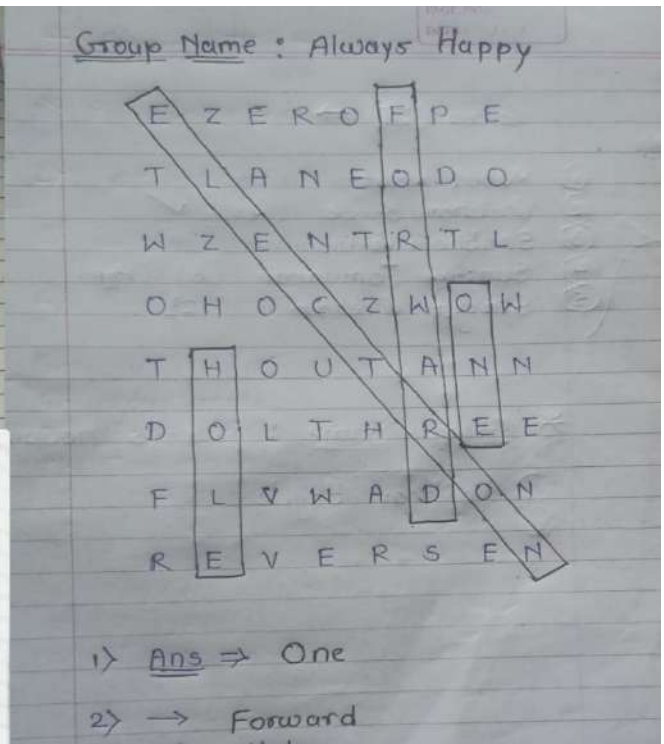 Group Name : Always Happy
E Z E R O F P E
T L A N E O D O
W Z E N T R T L
O H O C Z W O W
T H O U T A N N
D O L T H R E E
F L V W A D O N
R E V E R S E N
1) Ans ⇒ One
2) → Forward